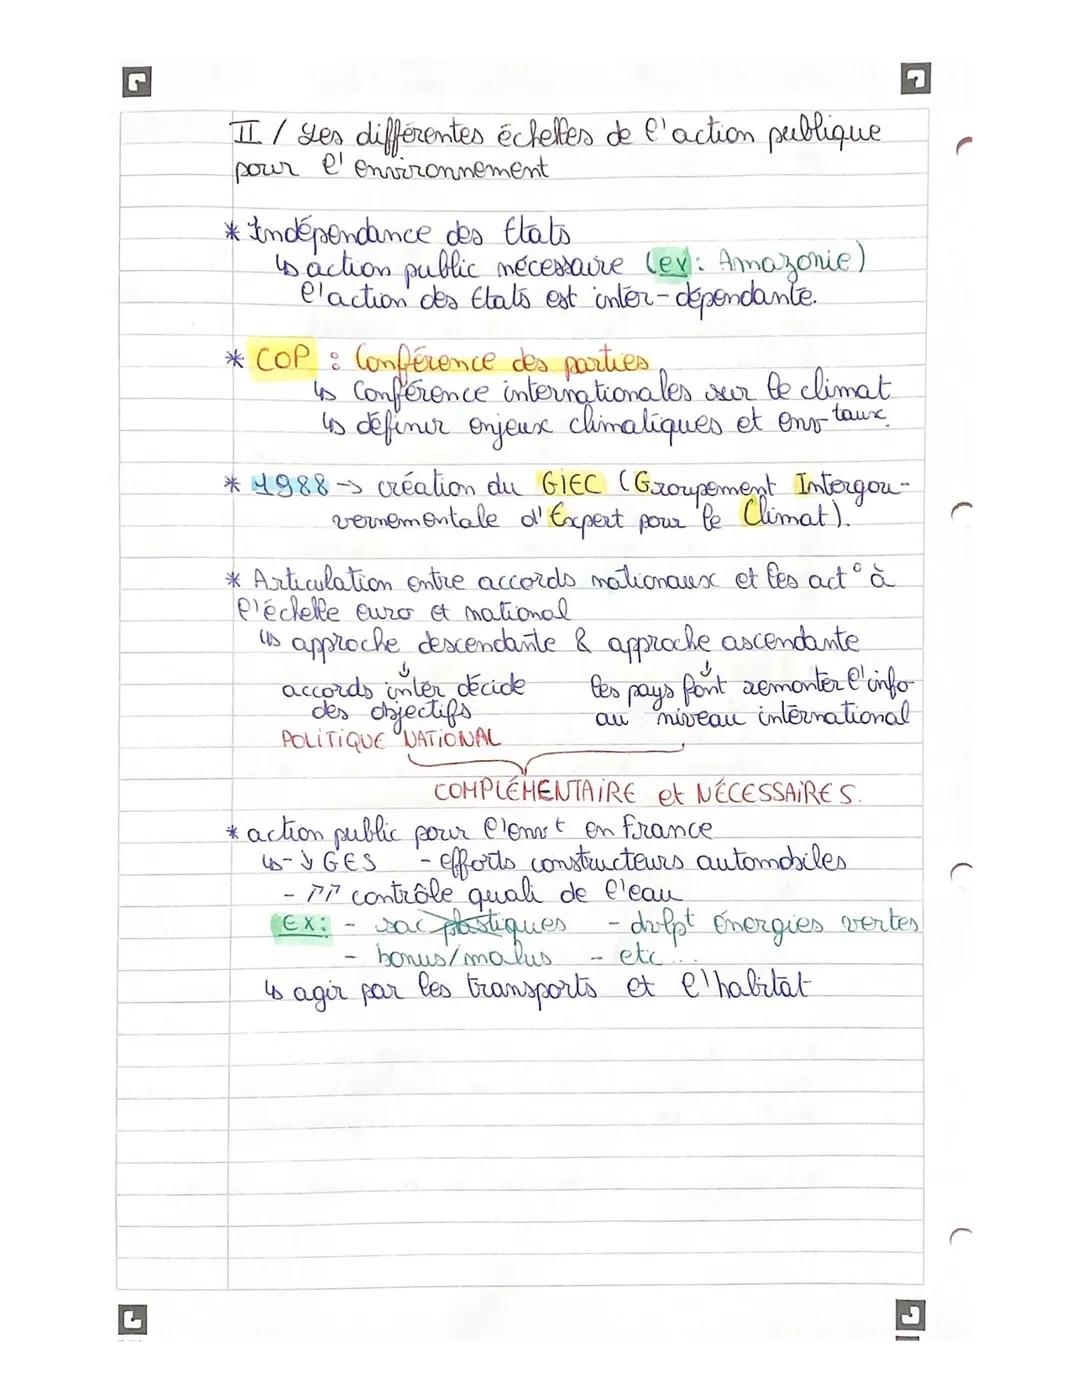 II / Les différentes échelles de l'action publique
pour l'environnement
* Indépendance des Etats
↳ action public nécessaire (ex: Amazonie)
l'action des Etats est inter-dépendante.
* COP : Conférence des parties
↳ Conférence internationales sur le climat
↳ définir enjeux climatiques et env-taux.
* 1988 → création du GIEC (Groupement Intergou-
vernementale d'Expert pour le Climat).
* Articulation entre accords nationaux et les act° à
l'échelle euro et national
↳ approche descendante & approche ascendante
↓ ↓
accords inter décide les pays font remonter l'info
des objectifs au niveau international
POLITIQUE NATIONAL
COMPLÉMENTAIRE et NÉCESSAIRES.
* action public pour l'envt en France
↳ - ↓ GES - efforts constructeurs automobiles
- ↗↗ contrôle quali de l'eau
EX: - sac plastiques - dvlpt énergies vertes
- bonus/malus - etc...
↳ agir par les transports et l'habitat